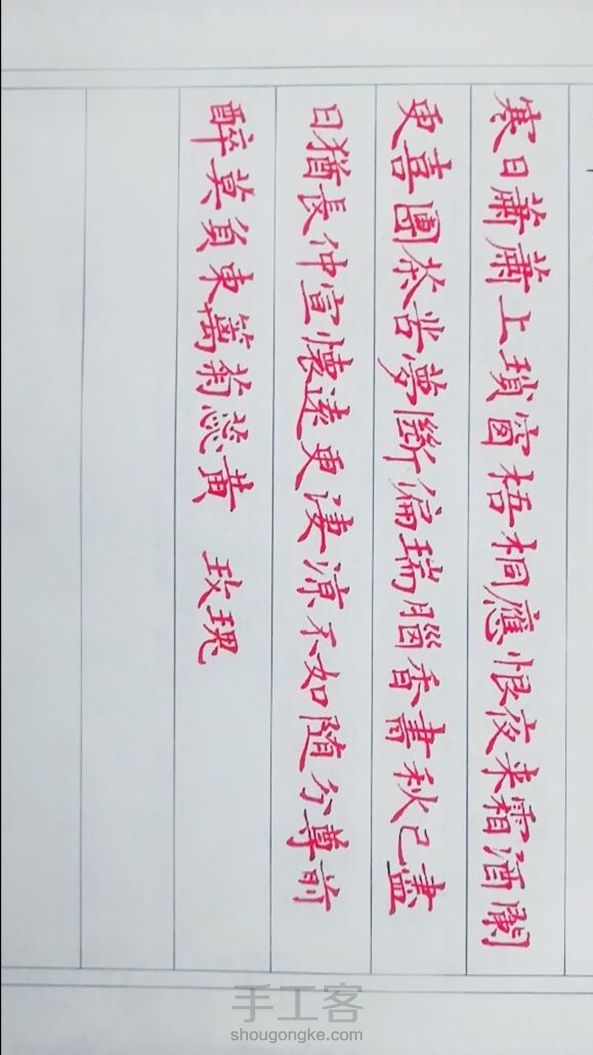 寒日蕭蕭上瑣窗梧桐應恨夜来霜酒闌
更喜團茶苦夢斷偏瑞腦香書秋已盡
日猶長仲宣懷遠更凄涼不如随分尊前
醉莫負東籬菊蕊黄 玫瑰
手工客
shougongke.com